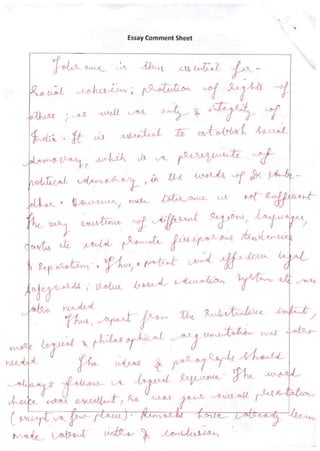 Essay Comment Sheet
Tolerance is thus essential for –
Social cohesion; protection of rights of
others; as well as unity & integrity of
India. It is essential to establish social
democracy, which is a prerequisite of
political democracy, in the words of Dr Ambe-
dkar. However, mere tolerance is not sufficient
The very existence of different regions, languages,
castes etc could promote fissiparous tendencies
& separatism. Thus, a potent and effective legal
safeguards; value based education system etc are
also needed
Thus, apart from the substantive content,
more logical & philosophical argumentation was also
needed. The ideas & paragraphs should
always follow a logical sequence. The word
choice was excellent; so was your overall presentation
(except a few places). Remarks have already been
made about intro & conclusion.